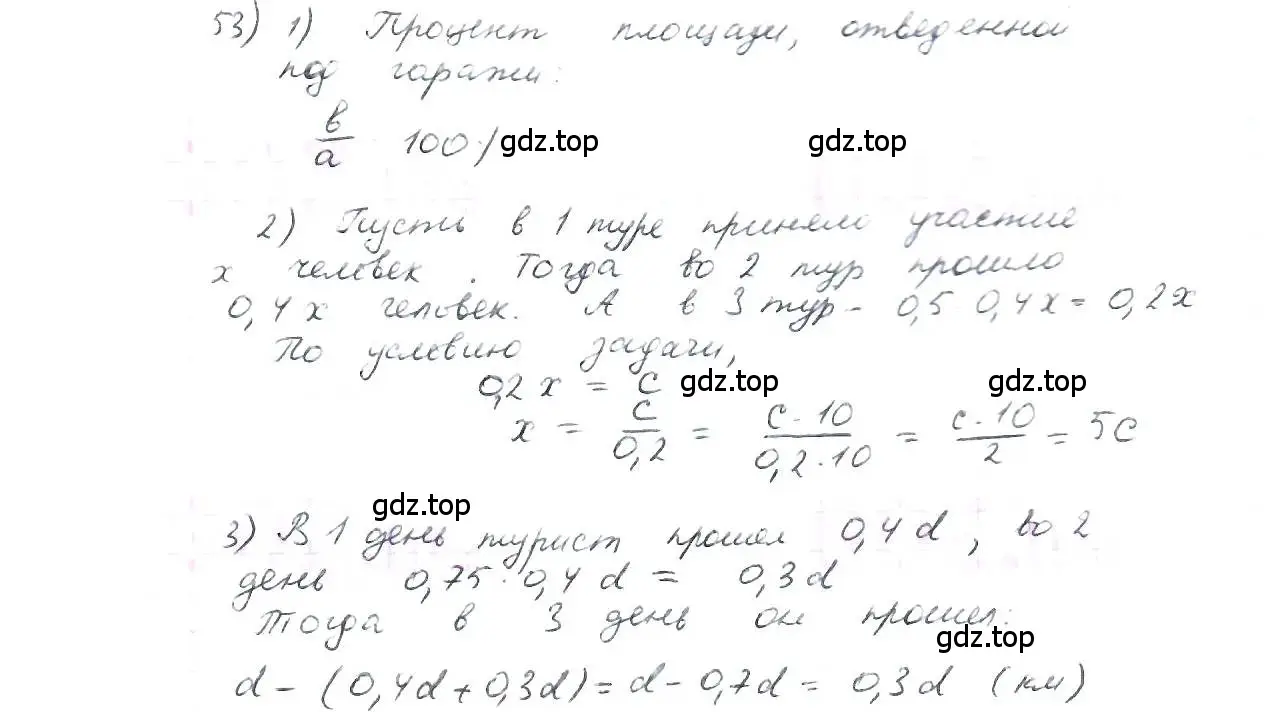 53) 1) Процент площади, отведенной
под гаражи:
в/а · 100% gdz.top gdz.top
2) Пусть в 1 туре приняло участие
x человек. Тогда во 2 тур прошло
0,4x человек. А в 3 тур - 0,5 0,4x = 0,2x
По условию задачи,
0,2x = c gdz.top gdz.top
x = c/0,2 = c·10/0,2·10 = c·10/2 = 5c
gdz.top
3) В 1 день турист прошел 0,4d, во 2
день 0,75·0,4d = 0,3d
Тогда в 3 день он прошел:
gdz.top
d - (0,4d + 0,3d) = d - 0,7d = 0,3d (км)